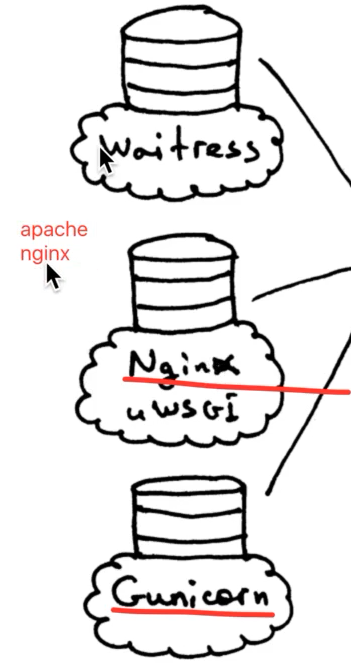 Waitress
apache
nginx
Nginx
uWSGI
Gunicorn